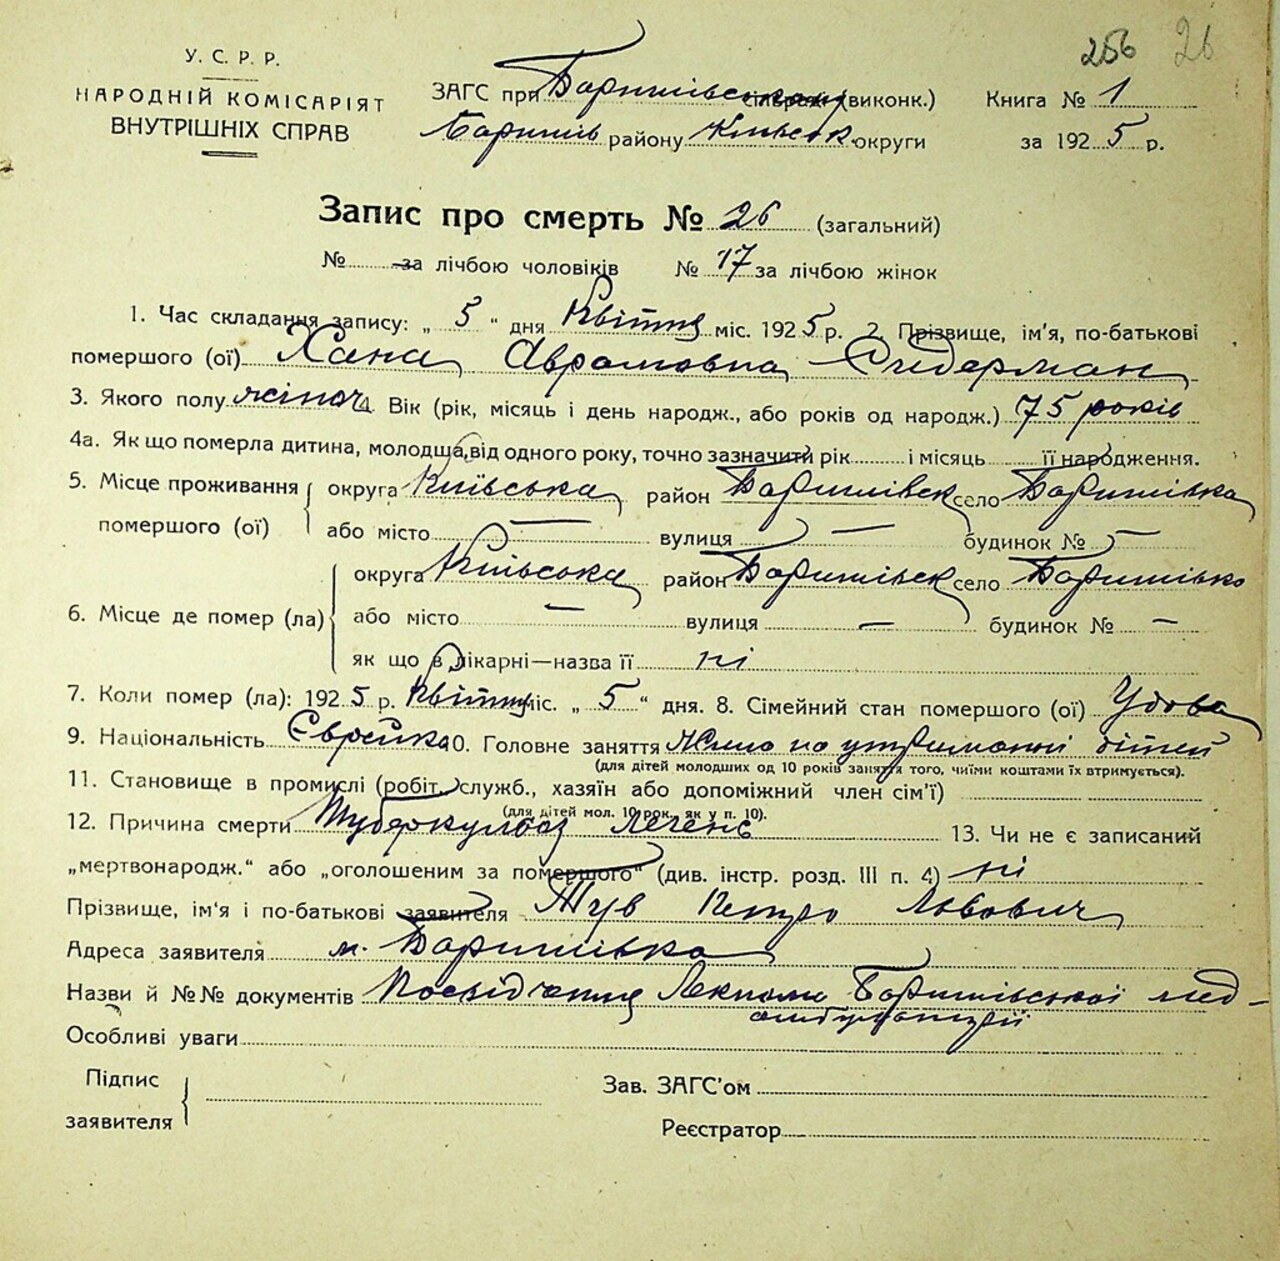 256 26
У. С. Р. Р.
НАРОДНІЙ КОМІСАРІЯТ
ВНУТРІШНІХ СПРАВ
ЗАГС при Баришівському (виконк.)
Баришів району Київськ. округи
Книга № 1
за 1925 р.
Запис про смерть № 26 (загальний)
№ — за лічбою чоловіків № 17 за лічбою жінок
1. Час складання запису: „ 5 “ дня Квітня міс. 1925 р. 2. Прізвище, ім'я, по-батькові
помершого (ої) Хана Аврамовна
3. Якого полу жіноч 4. Вік (рік, місяць і день народж., або років од народж.) 75 років
4а. Як що померла дитина, молодща від одного року, точно зазначити рік і місяць її народження.
5. Місце проживання помершого (ої)
округа Київська район Баришівськ село Баришівка
або місто — вулиця — будинок № —
6. Місце де помер (ла)
округа Київська район Баришівськ село Баришівка
або місто — вулиця — будинок № —
як що в лікарні—назва її ні
7. Коли помер (ла): 1925 р. Квітня міс. „ 5 “ дня. 8. Сімейний стан помершого (ої) Удова
9. Національність Єврейка 10. Головне заняття Жила на утриманні дітей
(для дітей молодших од 10 років заняття того, чиїми коштами їх втримується).
11. Становище в промислі (робіт., служб., хазяїн або допоміжний член сім'ї)
(для дітей мол. 10 рок. як у п. 10).
12. Причина смерти Туберкульоз легенів 13. Чи не є записаний
„мертвонародж.“ або „оголошеним за помершого“ (див. інстр. розд. III п. 4) ні
Прізвище, ім'я і по-батькові заявителя Тув Петро Львович
Адреса заявителя м. Баришівка
Назви й №№ документів Посвідчення Лекпома Баришівської мед-
амбулаторії
Особливі уваги
Підпис заявителя
Зав. ЗАГС'ом
Реєстратор